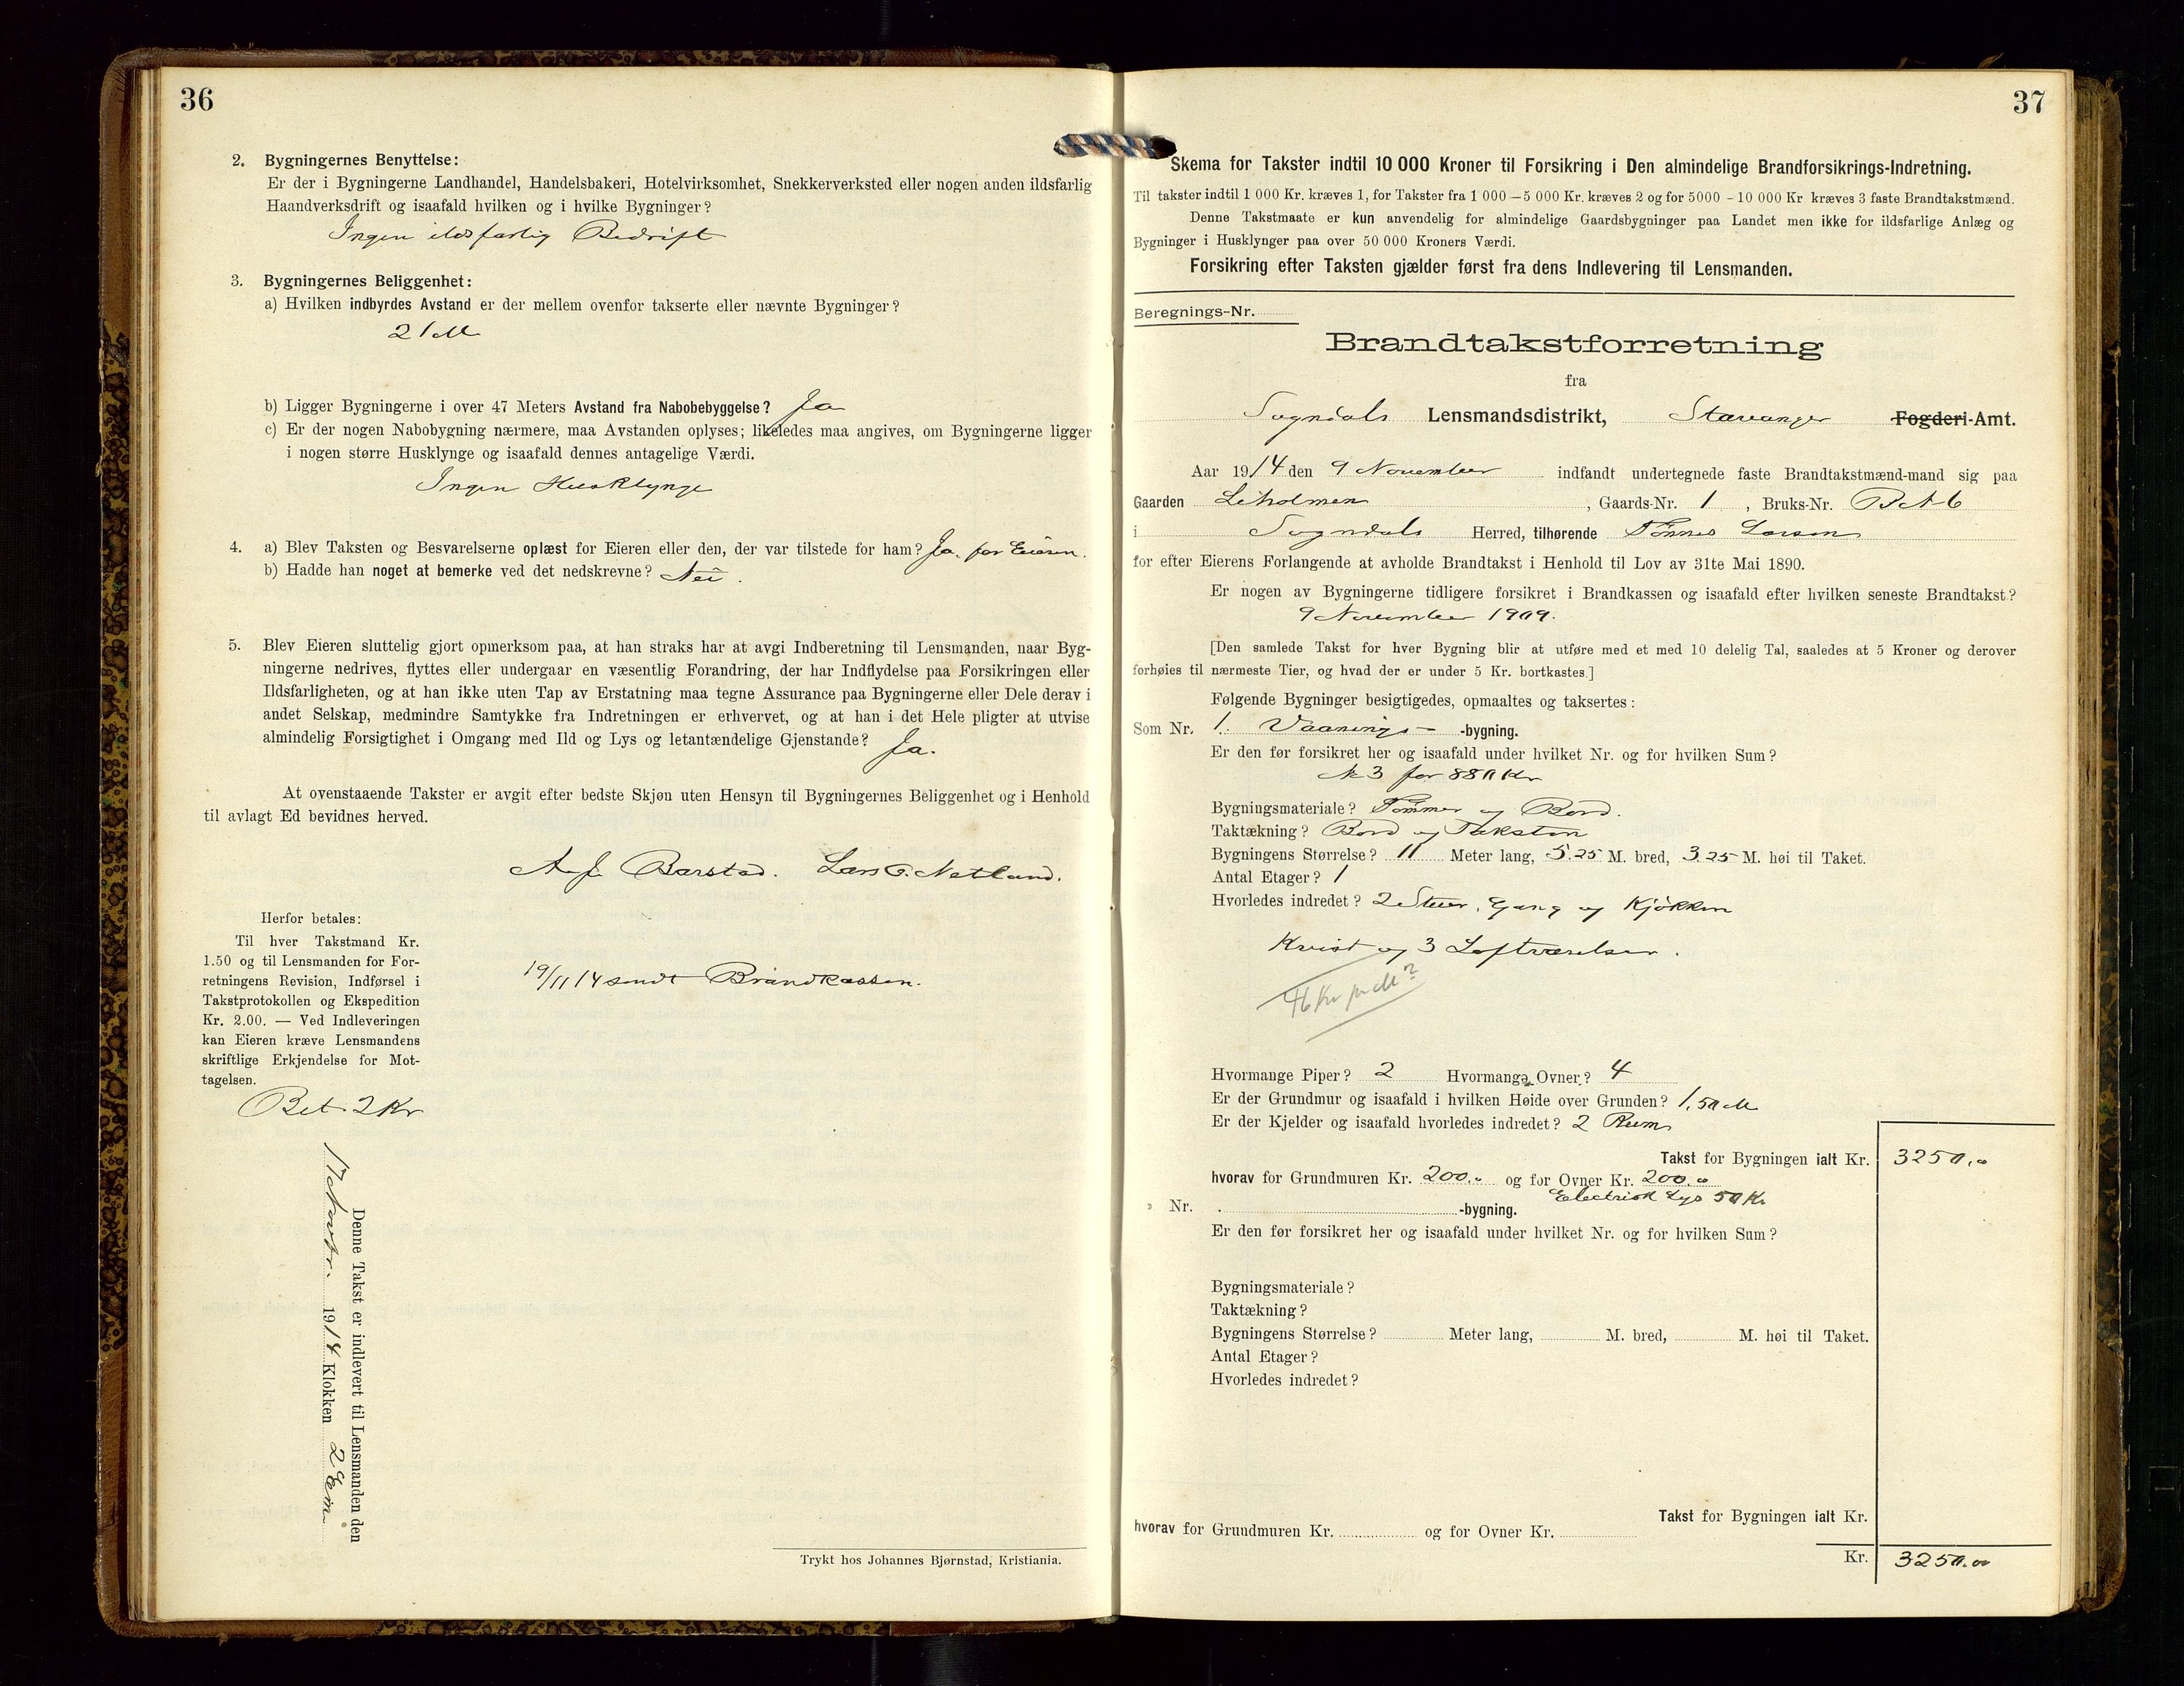 36
2. Bygningernes Benyttelse:
Er der i Bygningerne Landhandel, Handelsbakeri, Hotelvirksomhet, Snekkerverksted eller nogen anden ildsfarlig
Haandverksdrift og isaafald hvilken og i hvilke Bygninger?
Ingen ildsfarlig Bedrift
3. Bygningernes Beliggenhet:
a) Hvilken indbyrdes Avstand er der mellem ovenfor takserte eller nævnte Bygninger?
21 M
b) Ligger Bygningerne i over 47 Meters Avstand fra Nabobebyggelse? Ja
c) Er der nogen Nabobygning nærmere, maa Avstanden oplyses; likeledes maa angives, om Bygningerne ligger
i nogen større Husklynge og isaafald dennes antagelige Værdi.
Ingen Husklynge
4. a) Blev Taksten og Besvarelserne oplæst for Eieren eller den, der var tilstede for ham? Ja. for Eieren.
b) Hadde han noget at bemerke ved det nedskrevne? Nei.
5. Blev Eieren sluttelig gjort opmerksom paa, at han straks har at avgi Indberetning til Lensmanden, naar Byg-
ningerne nedrives, flyttes eller undergaar en væsentlig Forandring, der har Indflydelse paa Forsikringen eller
Ildsfarligheten, og at han ikke uten Tap av Erstatning maa tegne Assurance paa Bygningerne eller Dele derav i
andet Selskap, medmindre Samtykke fra Indretningen er erhvervet, og at han i det Hele pligter at utvise
almindelig Forsigtighet i Omgang med Ild og Lys og letantændelige Gjenstande? Ja.
At ovenstaaende Takster er avgit efter bedste Skjøn uten Hensyn til Bygningernes Beliggenhet og i Henhold
til avlagt Ed bevidnes herved.
A. J. Barstad. Lars O. Netland.
Herfor betales:
Til hver Takstmand Kr.
1.50 og til Lensmanden for For-
retningens Revision, Indførsel i
Takstprotokollen og Ekspedition
Kr. 2.00. — Ved Indleveringen
kan Eieren kræve Lensmandens
skriftlige Erkjendelse for Mot-
tagelsen.
19/11 14 sendt Brandkassen.
Bet. 2 Kr
Denne Takst er indlevert til Lensmanden den
17 Novbr. 1914 Klokken 2 Em.
Trykt hos Johannes Bjørnstad, Kristiania.
37
Skema for Takster indtil 10 000 Kroner til Forsikring i Den almindelige Brandforsikrings-Indretning.
Til takster indtil 1 000 Kr. kræves 1, for Takster fra 1 000 — 5 000 Kr. kræves 2 og for 5000 - 10 000 Kr kræves 3 faste Brandtakstmænd.
Denne Takstmaate er kun anvendelig for almindelige Gaardsbygninger paa Landet men ikke for ildsfarlige Anlæg og
Bygninger i Husklynger paa over 50 000 Kroners Værdi.
Forsikring efter Taksten gjælder først fra dens Indlevering til Lensmanden.
Beregnings-Nr.
Brandtakstforretning
fra
Sogndals Lensmandsdistrikt, Stavanger Fogderi-Amt.
Aar 1914 den 9 November indfandt undertegnede faste Brandtakstmænd-mand sig paa
Gaarden Leholmen, Gaards-Nr. 1, Bruks-Nr.
i Sogndals Herred, tilhørende Tønnes Larsen
for efter Eierens Forlangende at avholde Brandtakst i Henhold til Lov av 31te Mai 1890.
Er nogen av Bygningerne tidligere forsikret i Brandkassen og isaafald efter hvilken seneste Brandtakst?
9 November 1909.
[Den samlede Takst for hver Bygning blir at utføre med et med 10 delelig Tal, saaledes at 5 Kroner og derover
forhøies til nærmeste Tier, og hvad der er under 5 Kr. bortkastes.]
Følgende Bygninger besigtigedes, opmaaltes og taksertes:
Som Nr. 1. Vaanings- -bygning.
Er den før forsikret her og isaafald under hvilket Nr. og for hvilken Sum?
No 3 for 880 Kr
Bygningsmateriale? Tømmer og Bord.
Taktækning? Bord og Taksten
Bygningens Størrelse? 11 Meter lang, 5.25 M. bred, 3.25 M. høi til Taket.
Antal Etager? 1
Hvorledes indredet? 2 Stuer, Gang og Kjøkken
Kvist og 3 Loftværelser.
46 Kr pr M²
Hvormange Piper? 2 Hvormange Ovner? 4
Er der Grundmur og isaafald i hvilken Høide over Grunden? 1.50 M
Er der Kjelder og isaafald hvorledes indredet? 2 Rum
Takst for Bygningen ialt Kr. 3250.00
hvorav for Grundmuren Kr. 200.00 og for Ovner Kr. 200.00
Electrisk Lys 50 Kr
» Nr. -bygning.
Er den før forsikret her og isaafald under hvilket Nr. og for hvilken Sum?
Bygningsmateriale?
Taktækning?
Bygningens Størrelse? Meter lang, M. bred, M. høi til Taket.
Antal Etager?
Hvorledes indredet?
Takst for Bygningen ialt Kr.
hvorav for Grundmuren Kr. og for Ovner Kr.
Kr. 3250.00